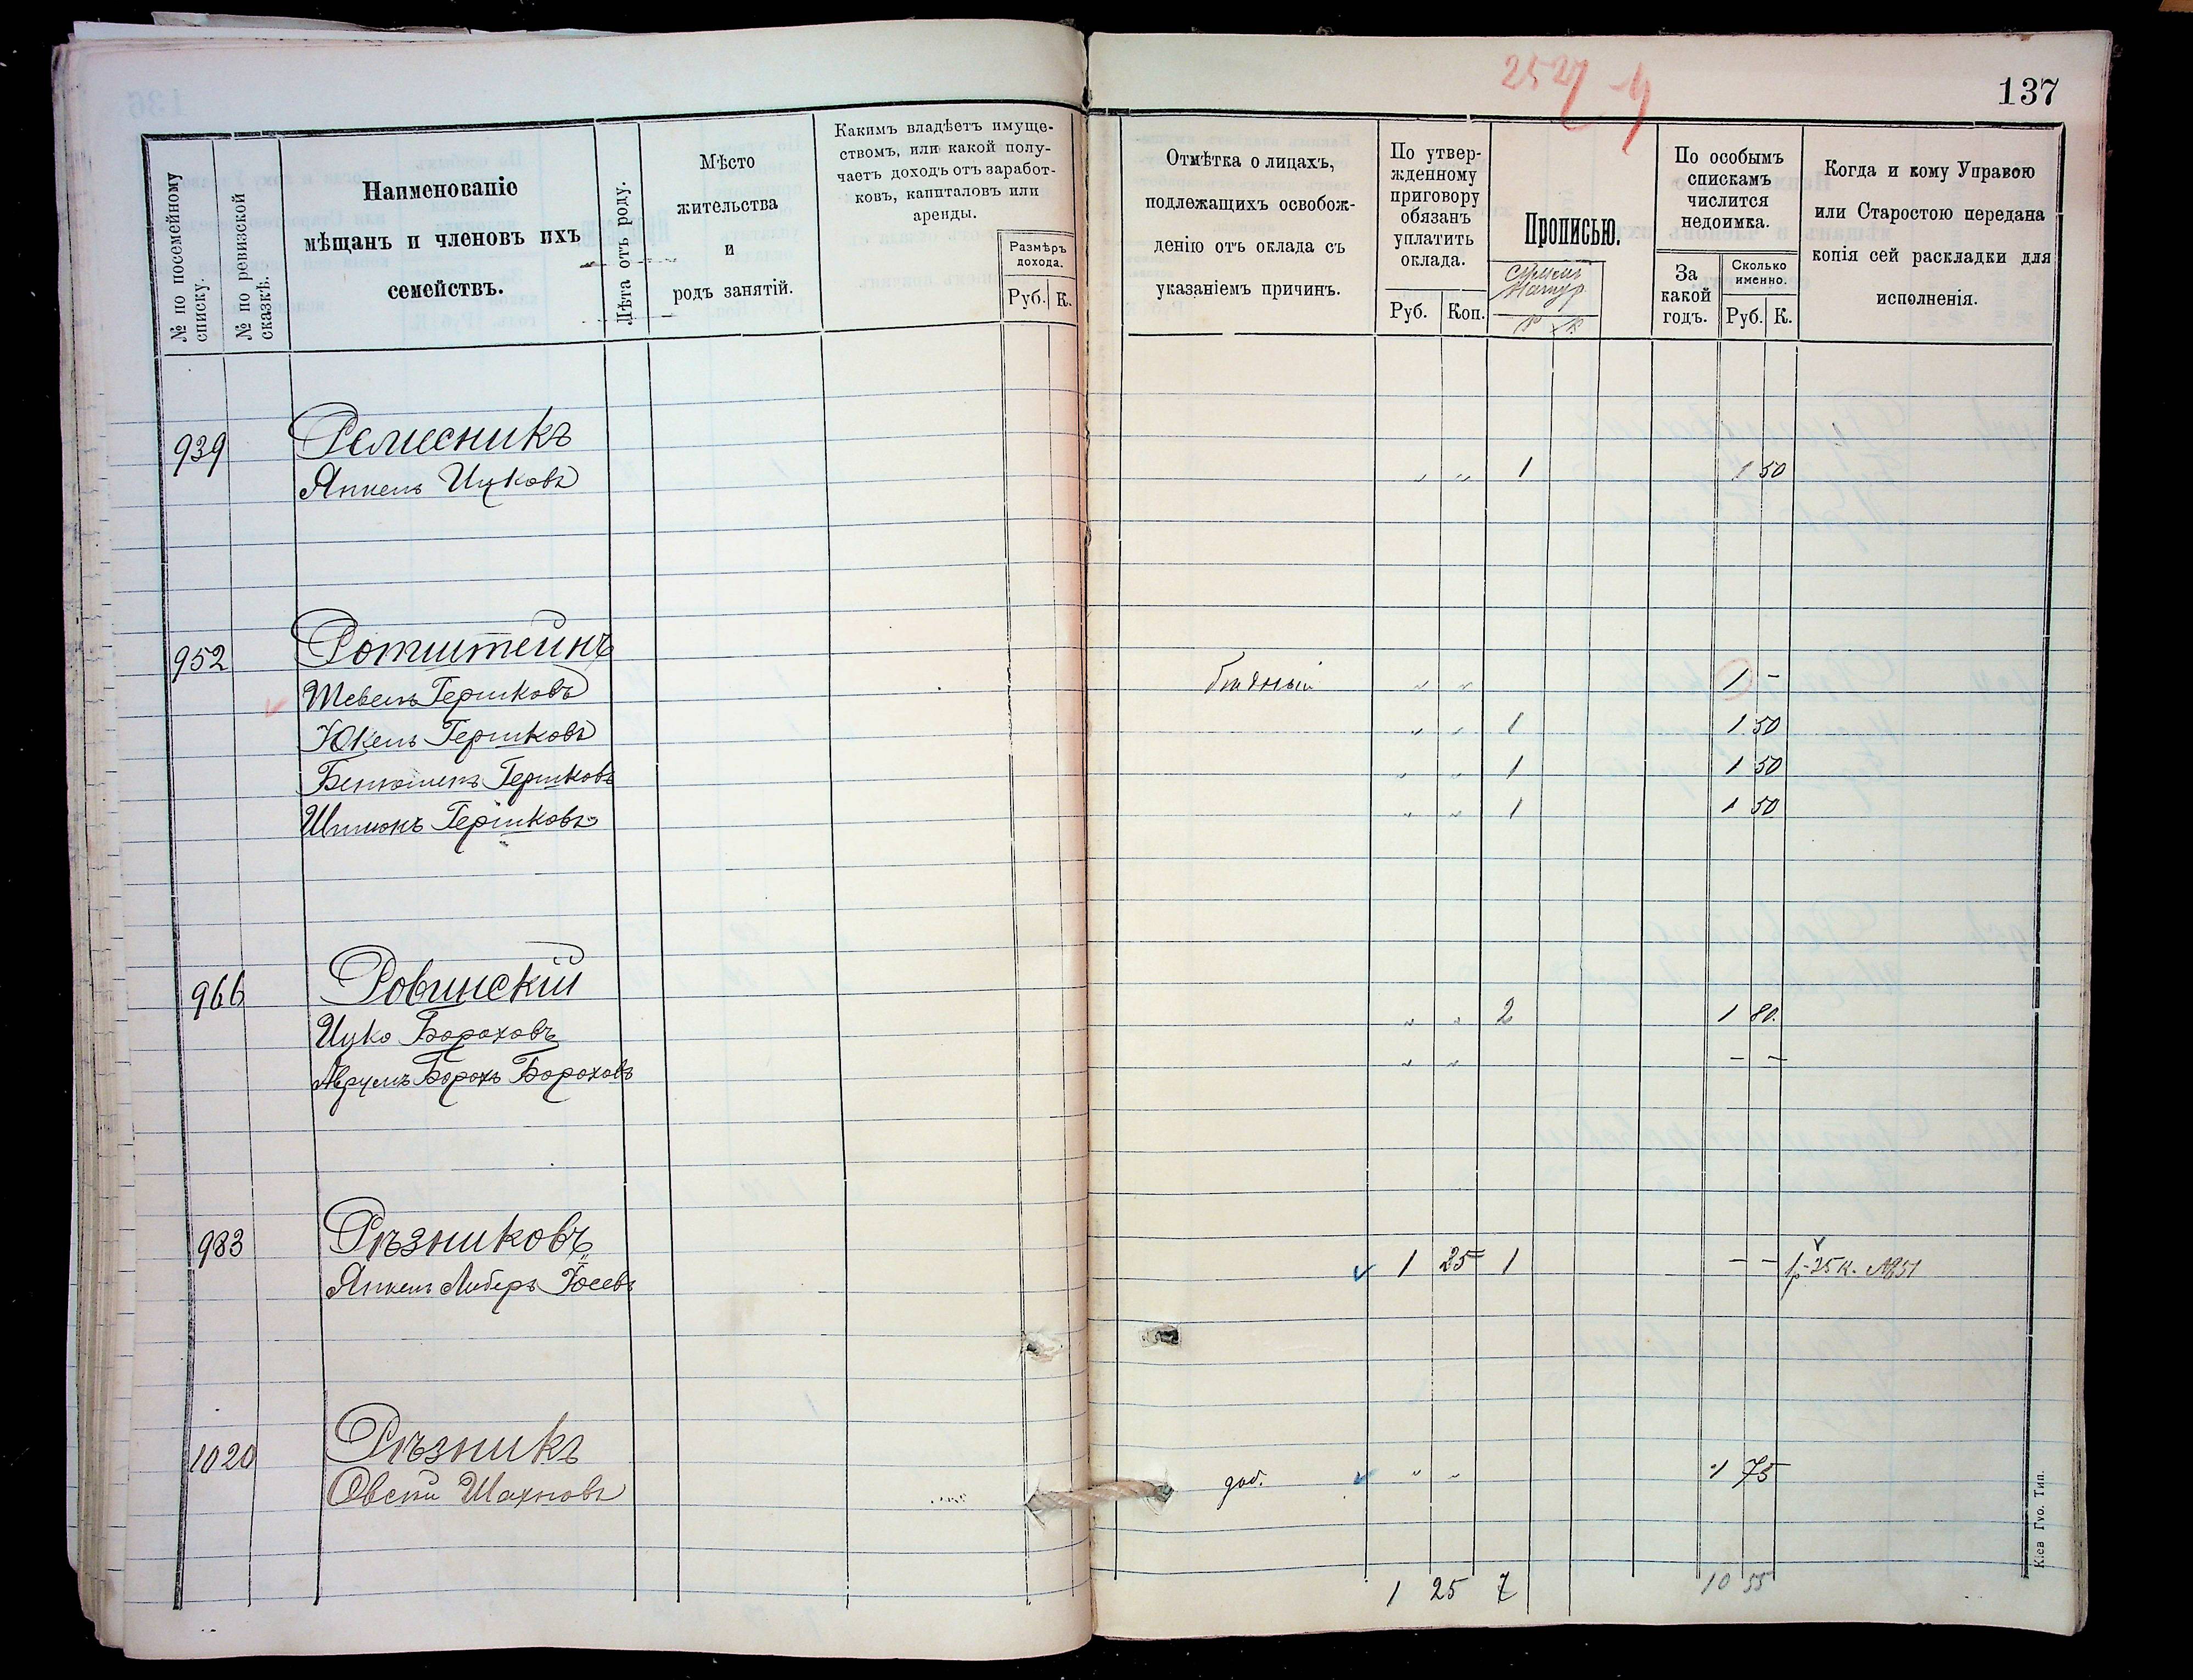 2527
137
№ по посемейному списку.
№ по ревизской сказкѣ.
Наименованіе
мѣщанъ и членовъ ихъ
семействъ.
Лѣта отъ роду.
Мѣсто
жительства
и
родъ занятій.
Какимъ владѣетъ имуще-
ствомъ, или какой полу-
чаетъ доходъ отъ заработ-
ковъ, капиталовъ или
аренды.
Размѣръ
дохода.
Руб. К.
Отмѣтка о лицахъ,
подлежащихъ освобож-
денію отъ оклада съ
указаніемъ причинъ.
По утвер-
жденному
приговору
обязанъ
уплатить
оклада.
Руб. Коп.
Прописью.
По особымъ
спискамъ
числится
недоимка.
За
какой
годъ.
Сколько
именно.
Руб. К.
Когда и кому Управою
или Старостою передана
копія сей раскладки для
исполненія.
939 Ремесникъ
Янкель Ицковъ " " 1 1 50
952 Ротштейнъ
Шевель Гершковъ бѣдный " " 1 -
Юкель Гершковъ " " 1 1 50
Беньюменъ Гершковъ " " 1 1 50
Шимонъ Гершковъ " " 1 1 50
966 Ровинскій
Ицко Бороховъ " " 2 1 80
Аврумъ Борохъ Бороховъ " " - -
983 Рѣзниковъ
Янкель Либеръ Юсевъ 1 25 1 - - 1р 25 к. №51
1020 Рѣзникъ
Овсей Шахновъ доб. " " 1 75
1 25 7 10 55
Кіев. Губ. Тип.